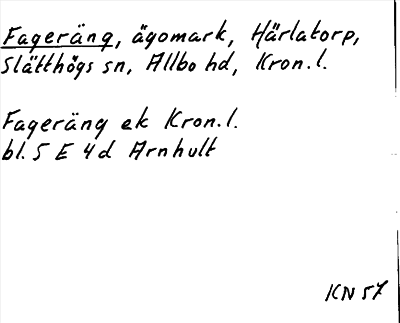 Fageräng, ägomark, Härlatorp,
Slätthögs sn, Allbo hd, Kron. l.
Fageräng ek Kron. l.
bl. 5 E 4d Arnhult
KN 57